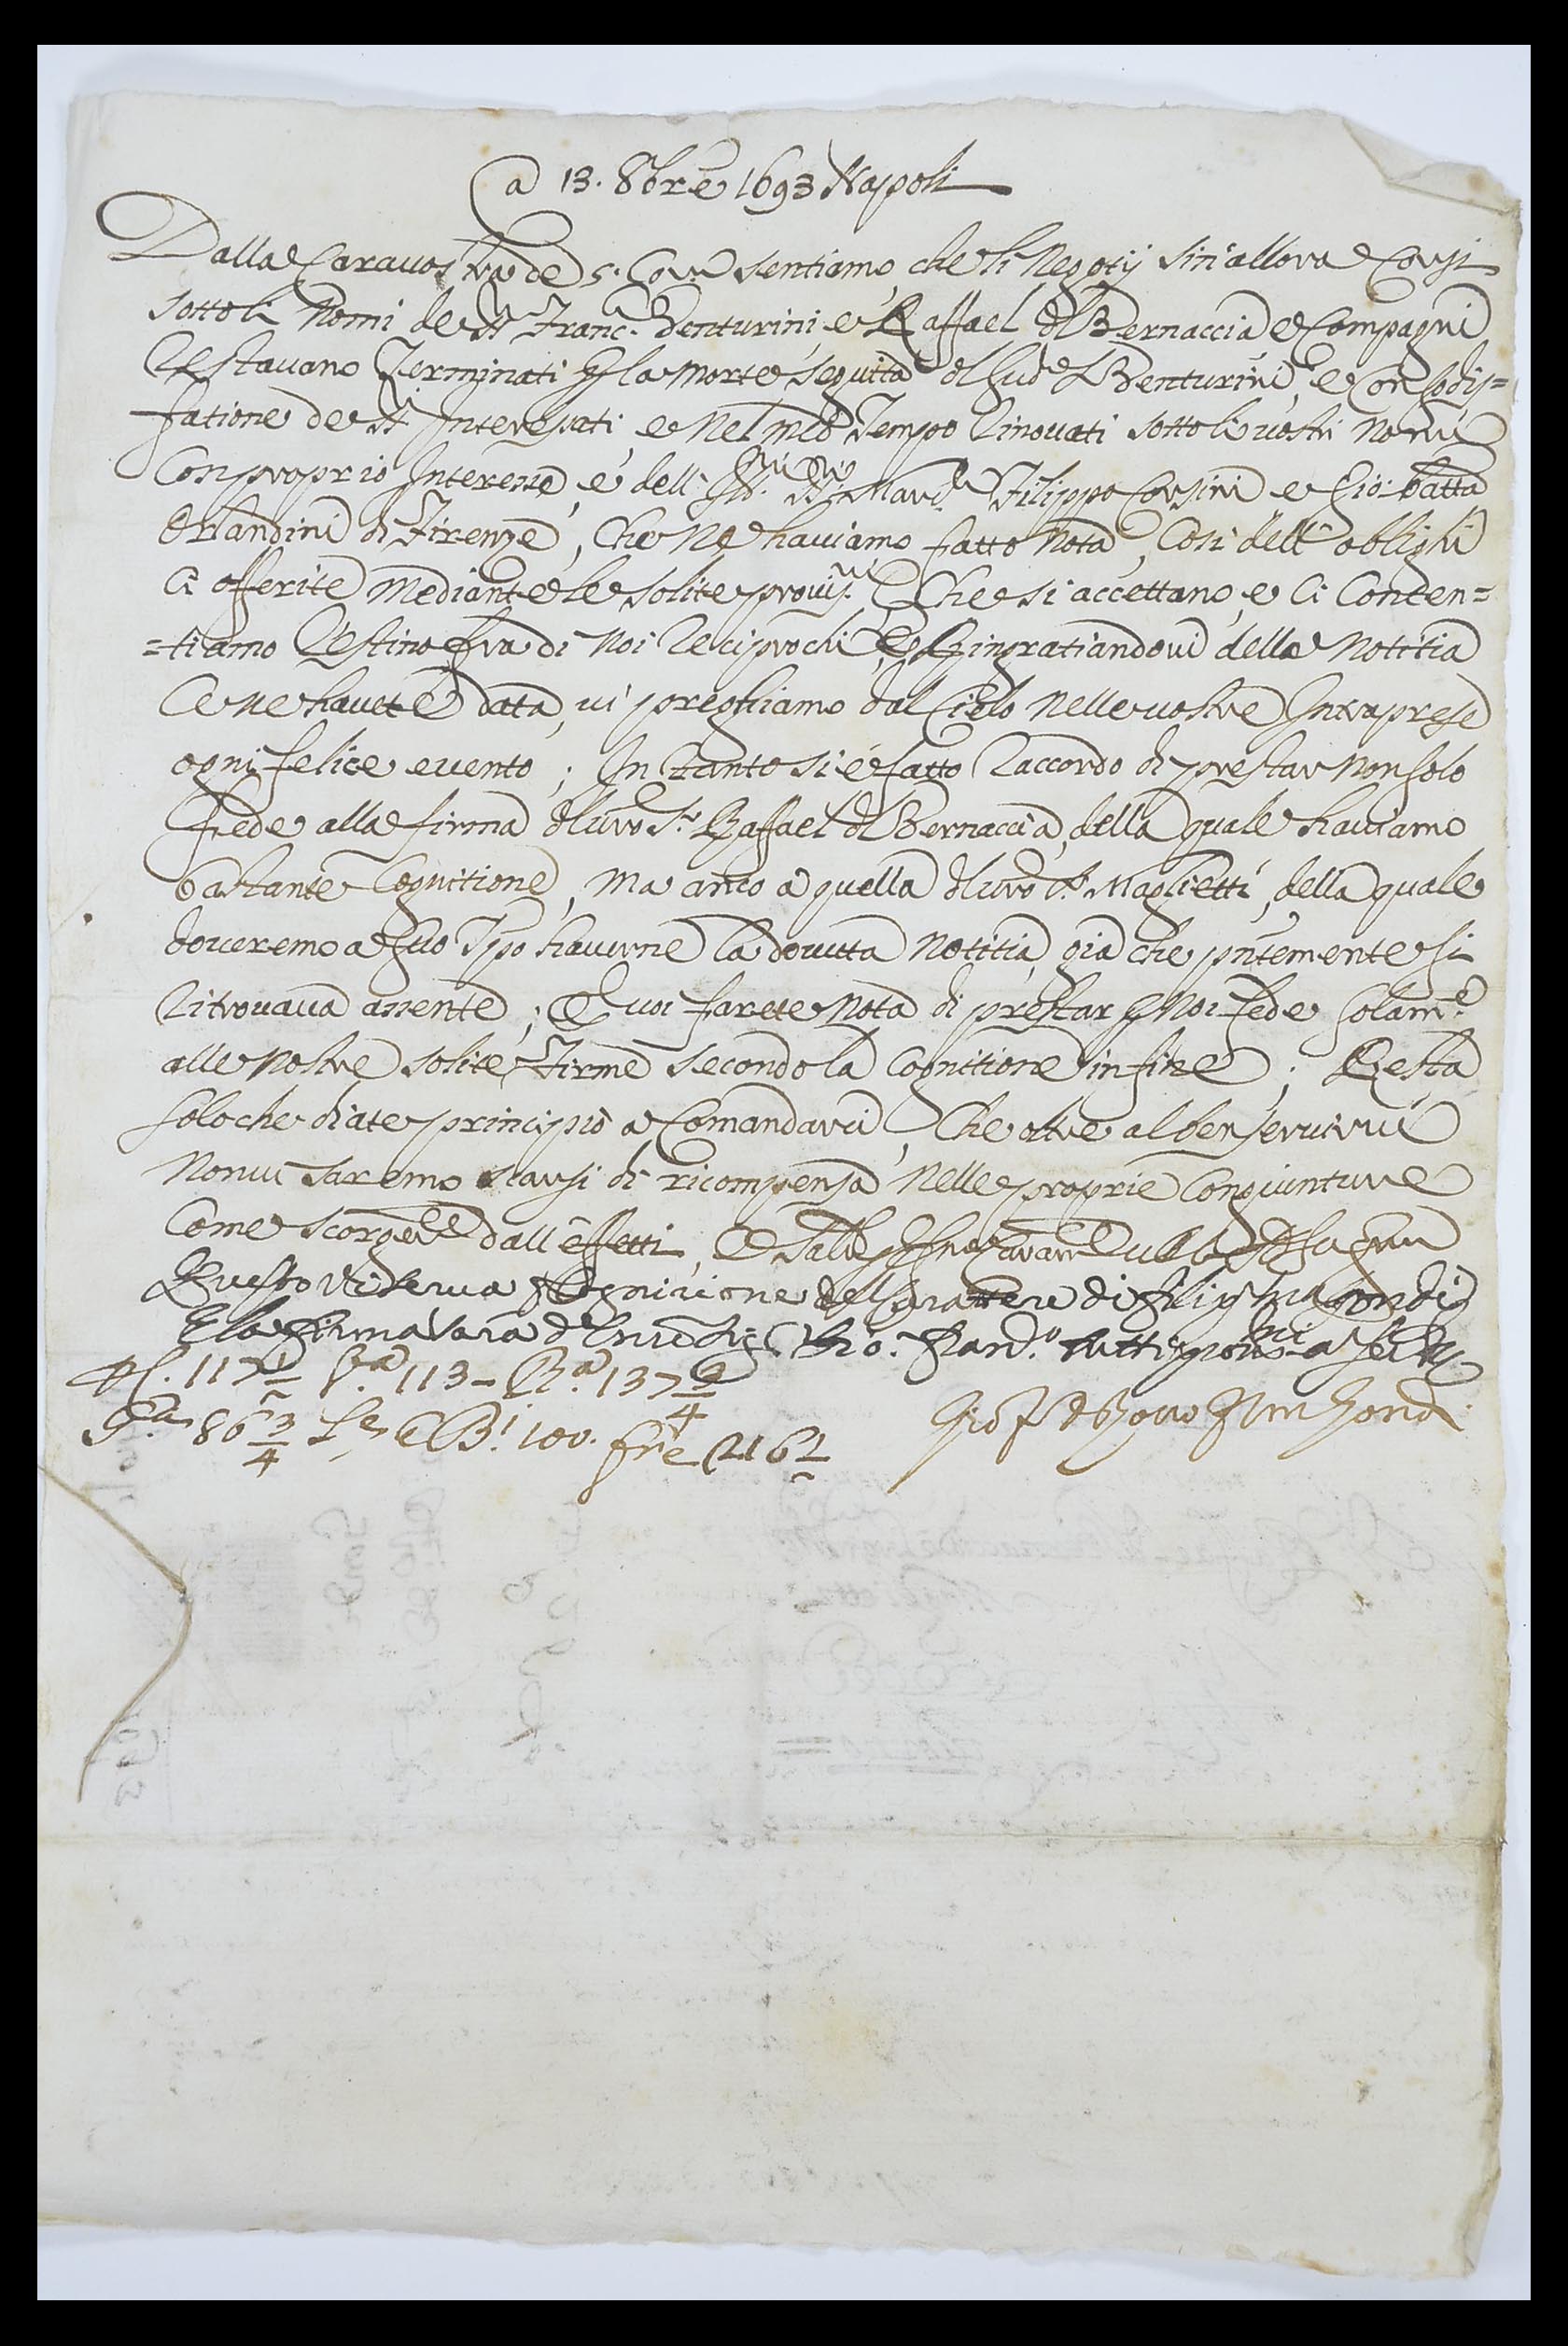 a 13. 8bre 1693 Napoli
Dalla Cara vostra de 5. Corr.e sentiamo che li Negotij sin'allora Corsi
sotto li Nomi de SS.ri Franc.o Venturini e Raffael del Bernaccia e Compagni
restavano Terminati per la Morte seguita del sud.o Venturini, e con sodis=
fatione de SS.ri Interessati e nel med.o Tempo rinovati sotto li vostri Nomi
Con proprio Interesse, e dell' Ill.mi SS.ri March.e Filippo Corsini e Gio: Batta
Orlandini di Firenze, Che Ne haviamo fatto Nota, Così dell' oblighi
Ci offerite Mediante le solite provis.ni Che si accettano, e Ci Conten=
=tiamo restino fra di Noi reciprochi, e ringratiandovi della Notitia
Ce ne havete data, vi preghiamo dal Cielo Nelle vostre Intraprese
ogni felice evento; In tanto si è fatto l'accordo di prestar Non solo
fede alla firma del vro S.r Raffael del Bernaccia, della quale haviamo
bastante Cognitione, Ma anco a quella del vro S.r Maglietti, della quale
doveremo a suo Tpo haverne la dovuta Notitia, già che pntemente si
ritrovava assente; E voi farete Nota di prestar per Noi fede solam.e
alle Nostre solite Firme secondo la Cognitione in fine; Resta
solo che diate principio a Comandarci, Che oltre al ben servirvi
Non vi saremo scarsi di ricompensa Nelle proprie Congiunture
Come scorgerete dall'effetti,
Questo vi serva per Cognicione del Carattere di
E la firma sara de
117 1/2 113 – 137 3/4
86 3/4 100. fre 216 1/2